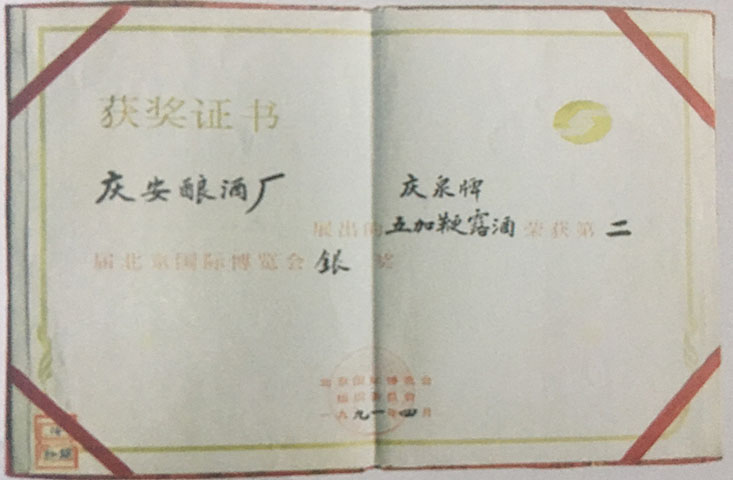 获奖证书
庆安酿酒厂
庆泉牌
展出的五加鞭露酒荣获第二
届北京国际博览会银奖
北京国际博览会
一九九一年四月